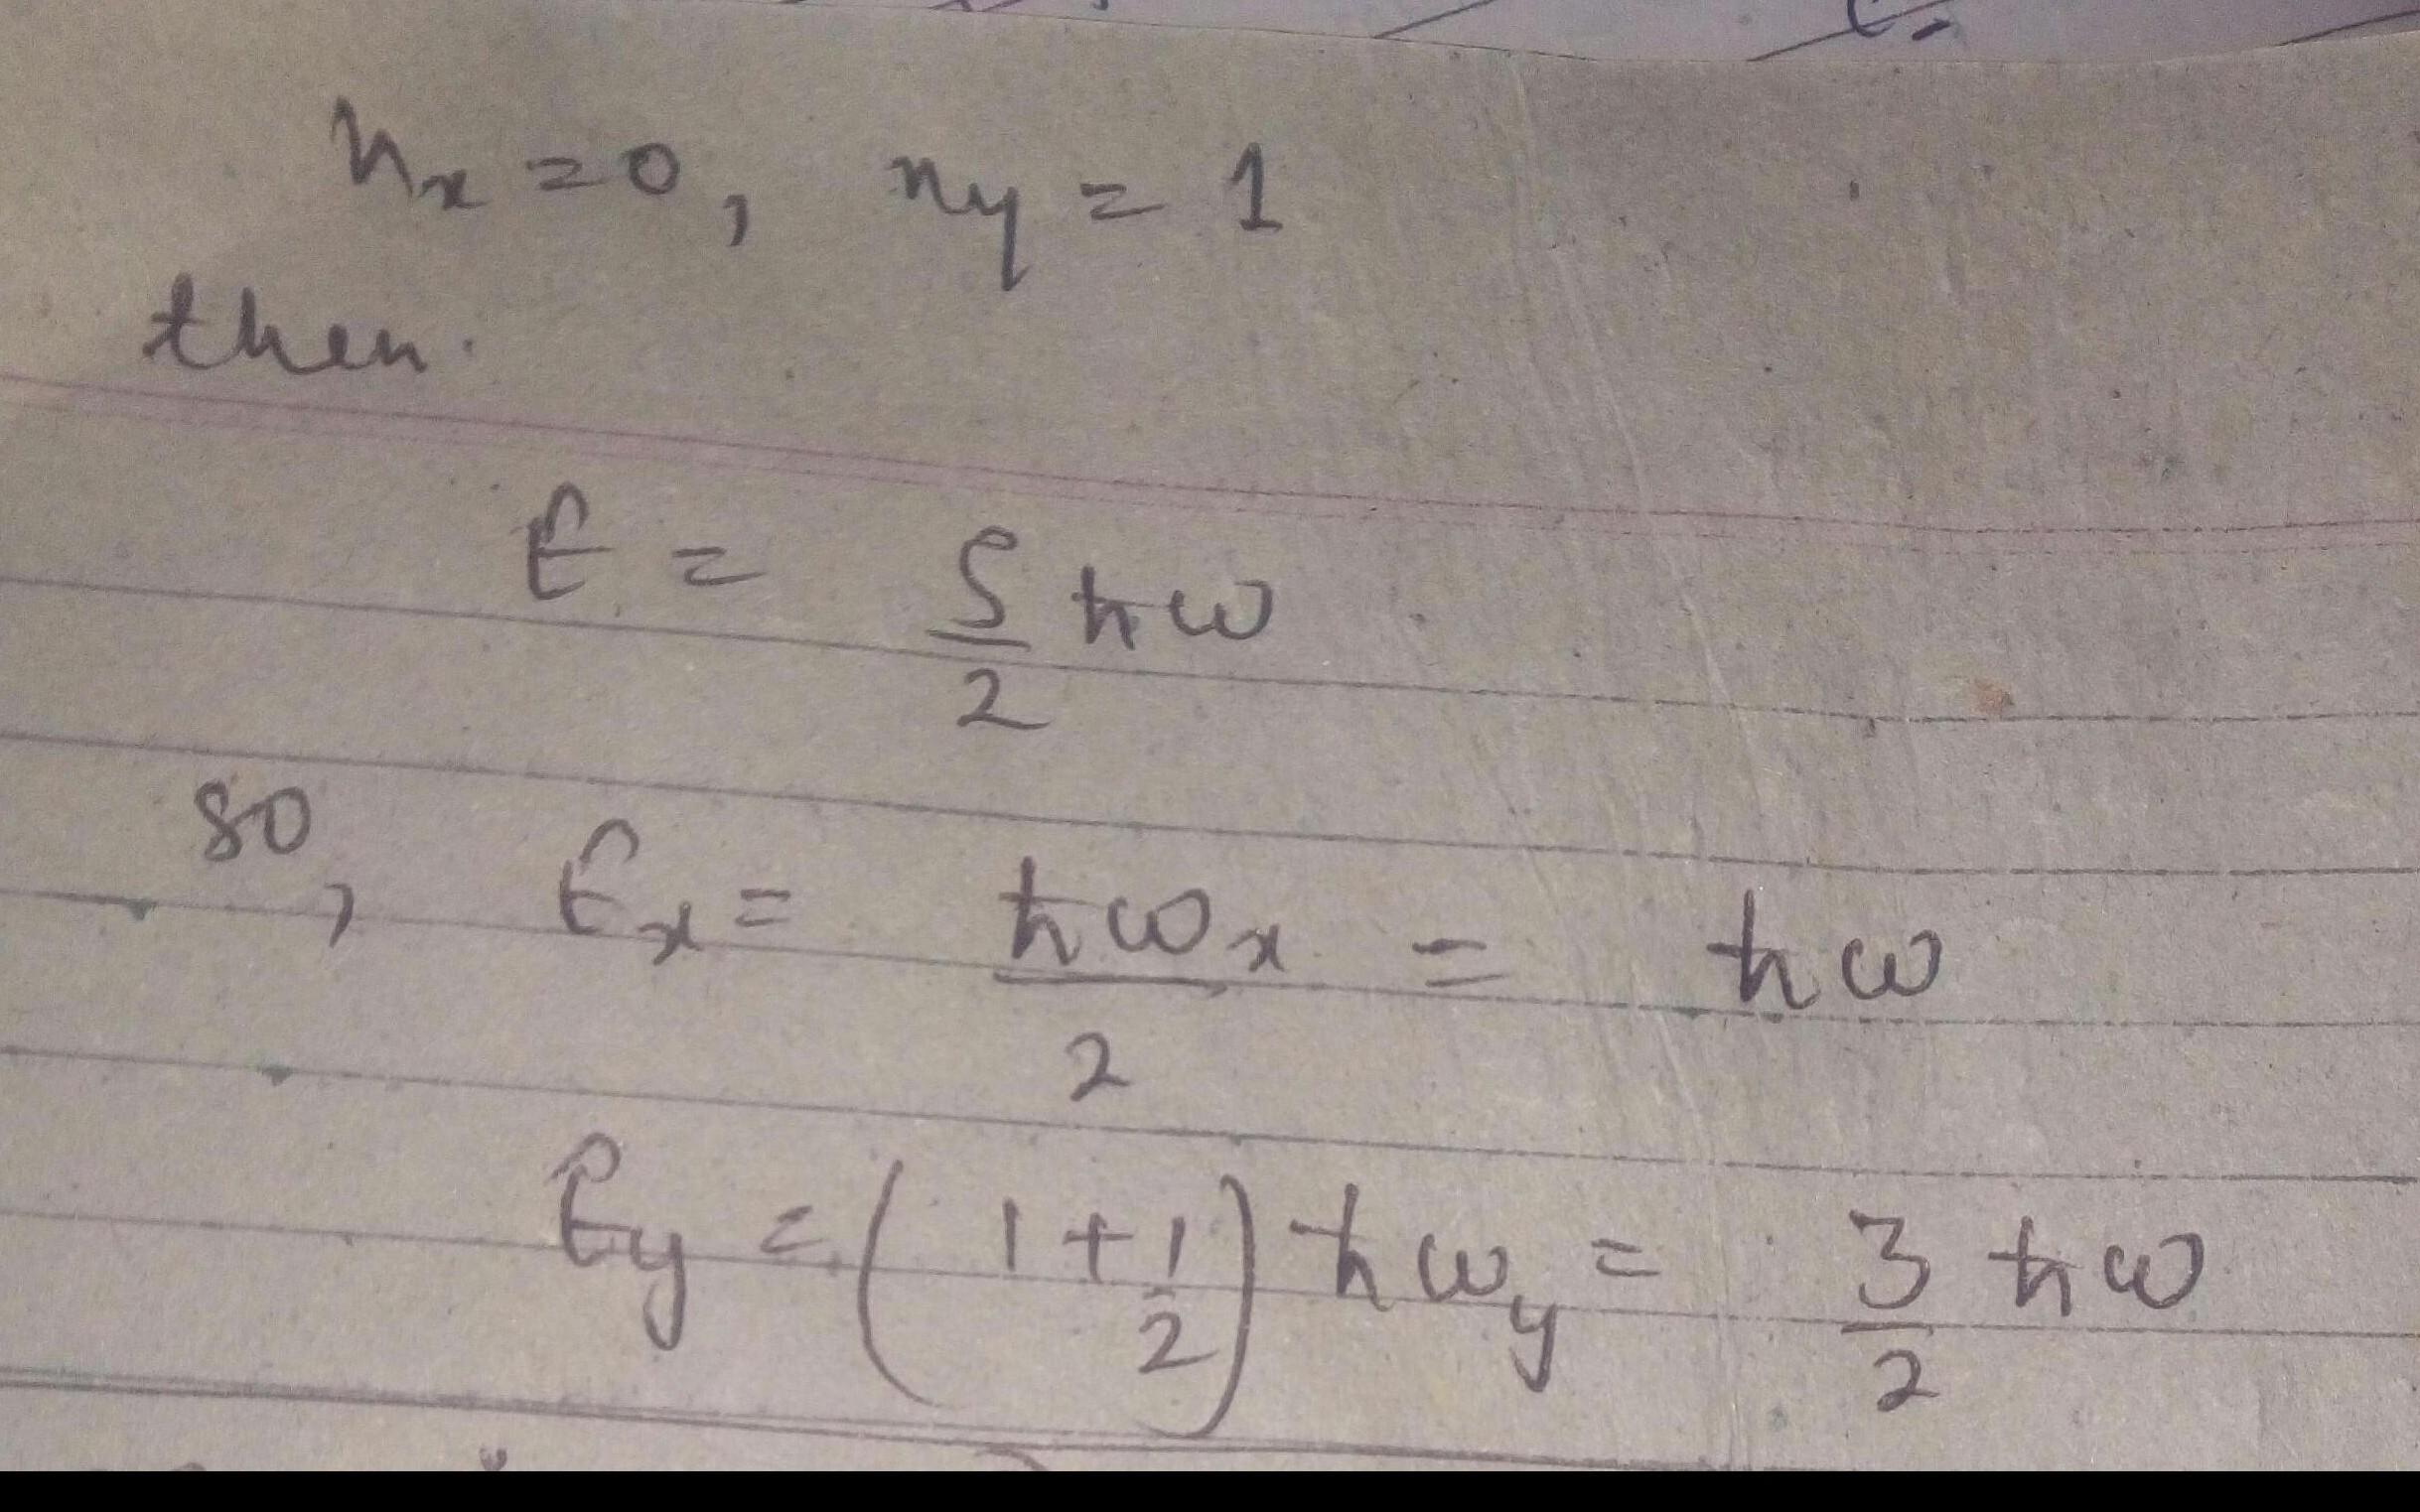 nx = 0, ny = 1
then.
E = 5/2 ħω
so, Ex = ħωx/2 = ħω
Ey = (1 + 1/2) ħωy = 3/2 ħω